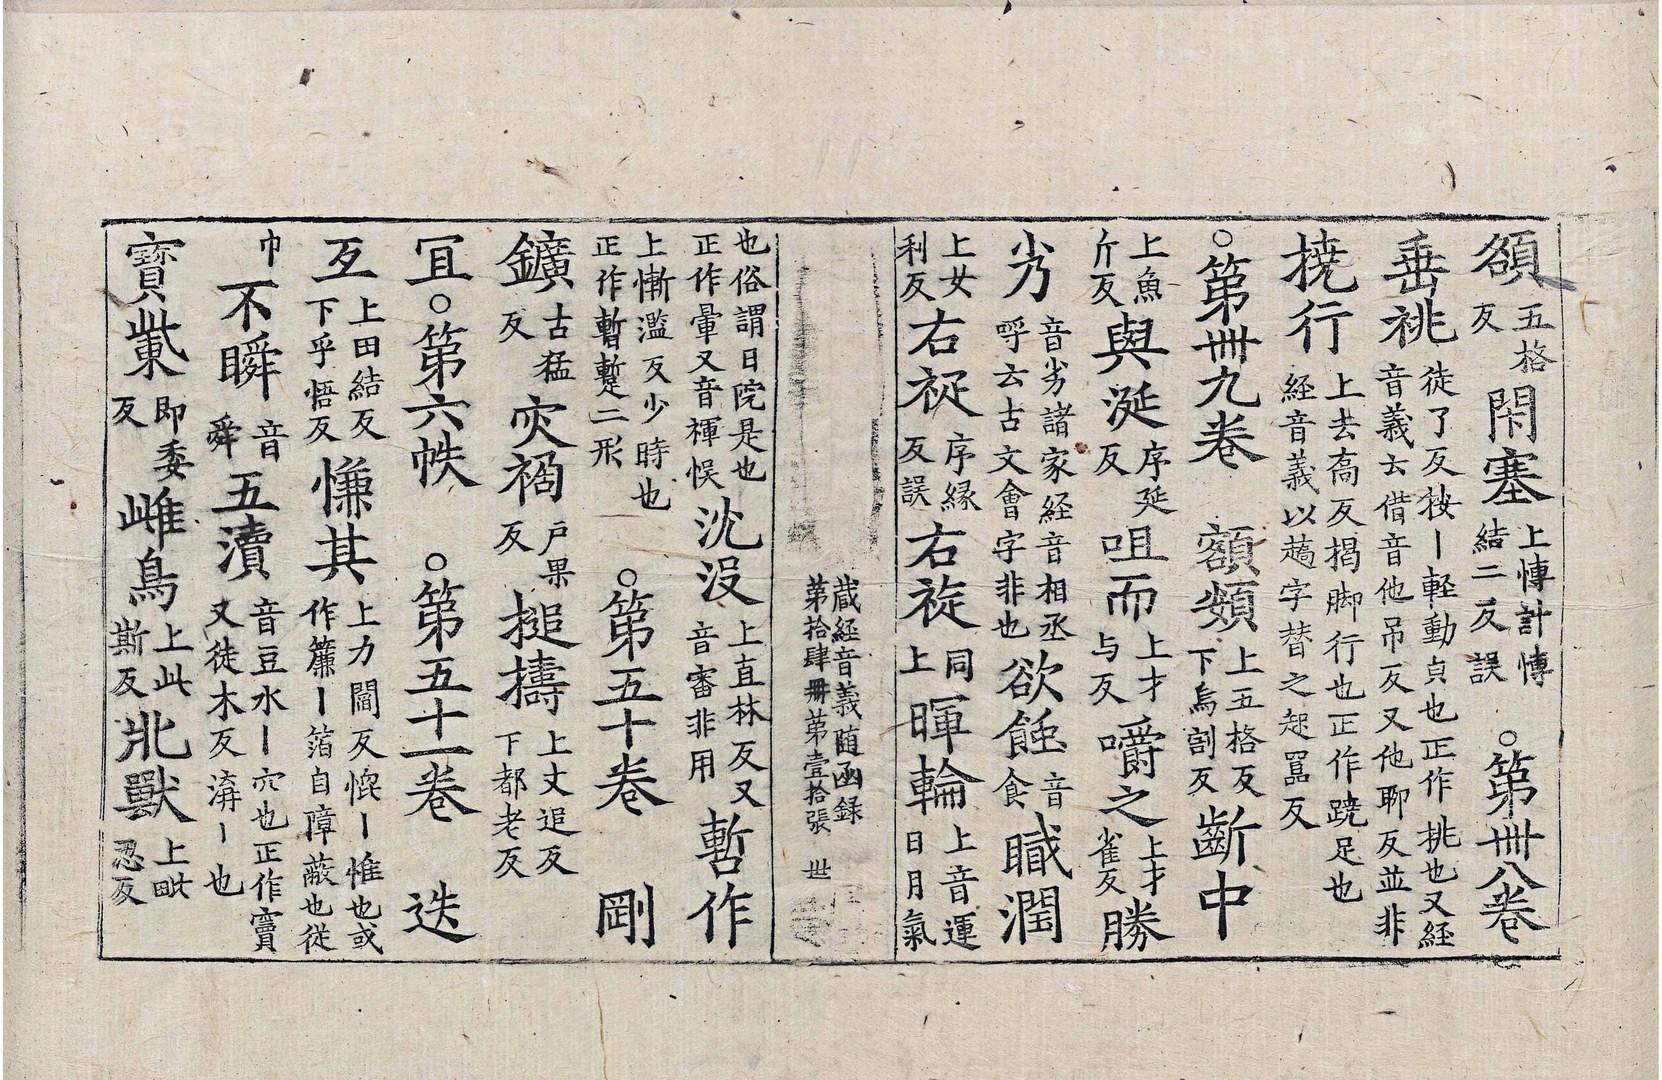 頟五格反閇塞上愽計愽結二反誤○第卌八卷
垂祧徒了反按丨輕動皃也正作挑也又經音義云借音他吊反又他聊反並非
撓行上去高反揭脚行也正作蹺足也經音義以䠏字替之起嚻反
○第卌九卷 額頞上五格反下烏割反齗中
上魚斤反與涎序延反咀而上才与反嚼之上才雀反勝
劣音劣諸家經音相丞呼云古文會字非也欲䬸音食膱潤
上女利反右㳬序緣反誤右旋同上暉輪上音運日月氣
藏經音義隨函録
第拾肆冊第壹拾張 世
也俗謂日院是也正作暈又音褌悮沈沒上直林反又音審非用暫作
上慚濫反少時也正作暫蹔二形○第五十卷 剛
鑛古猛反灾禍戶果反搥擣上丈追反下都老反
冝○第六帙 ○第五十一卷 迭
互上田結反下乎悟反慊其上力閻反幌丨帷也或作簾丨箔自障蔽也從
巾不瞬音舜五瀆音豆水丨穴也正作竇又徒木反溝丨也
寳㭰即委反雌鳥上此斯反牝獸上毗忍反